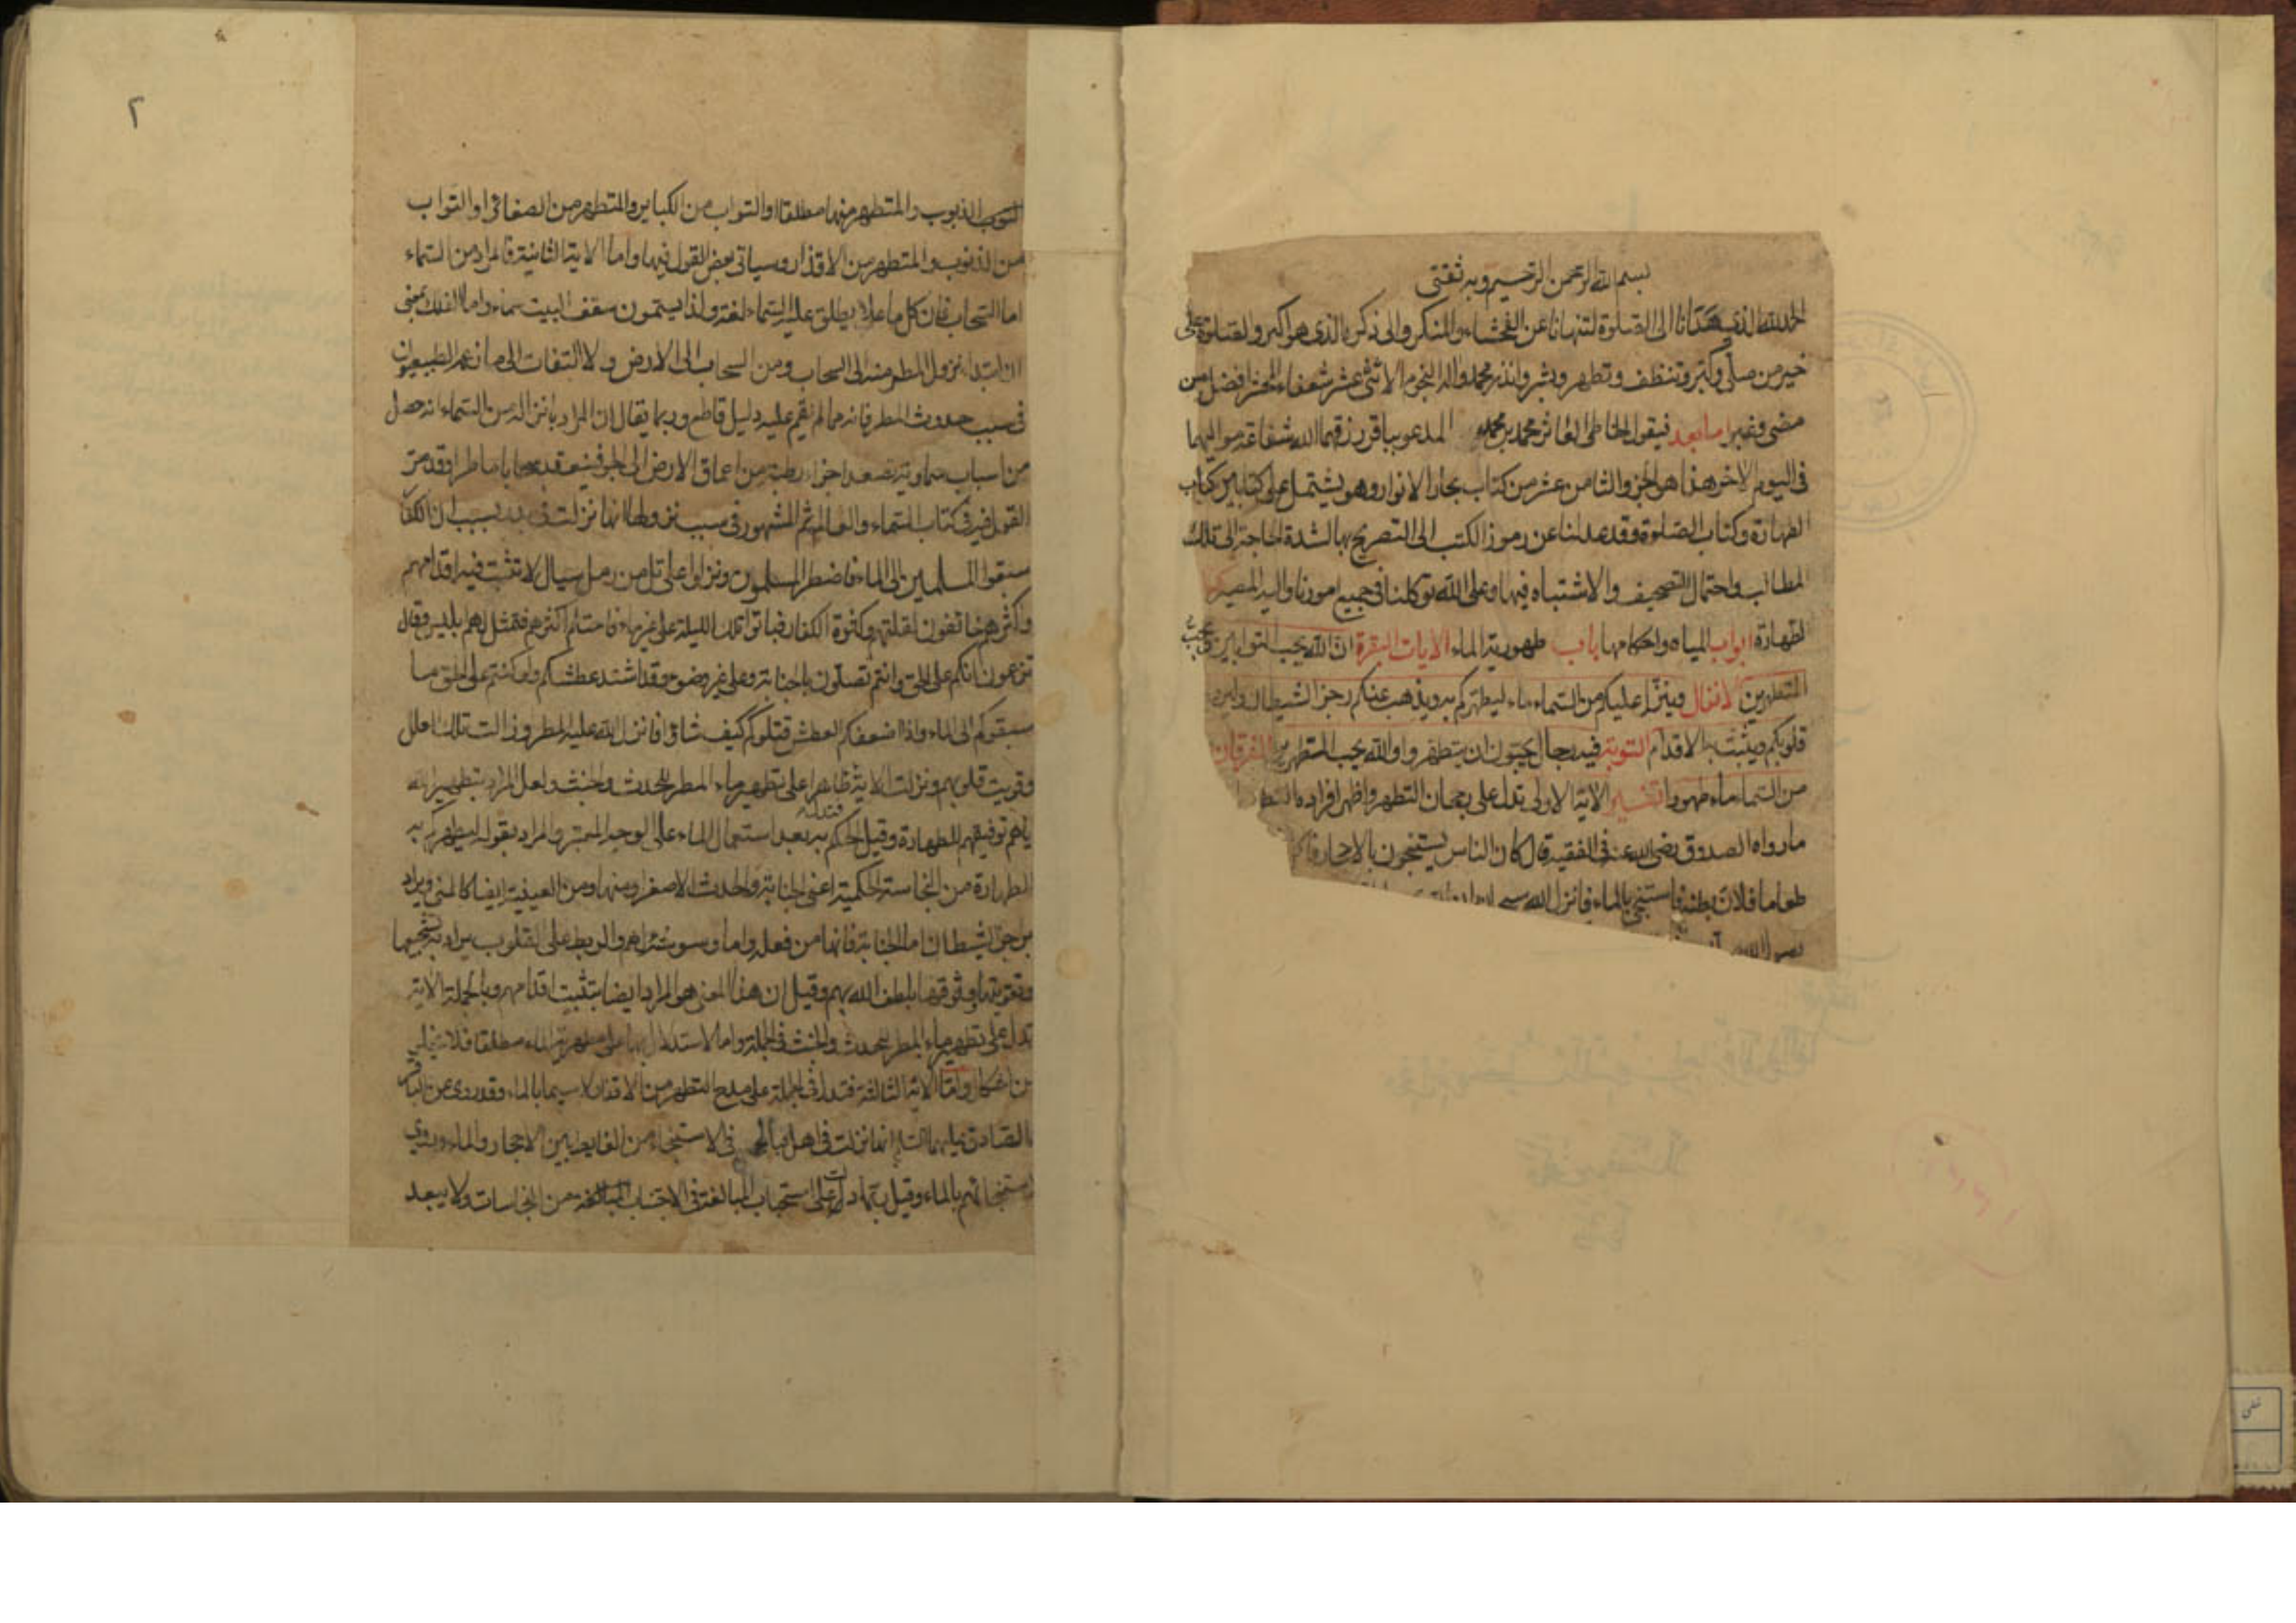 بسم الله الرحمن الرحيم وبه ثقتى
الحمد لله الذى هدانا الى الصلوة لتنهانا عن الفحشاء والمنكر والى ذكره الذى هو اكبر والصلوة على
خير من صلى وكبر وتنظف وتطهر وبشر وانذر محمد واله النجوم الاثنى عشر شفعاء المحشر افضل من
مضى وغبر اما بعد فيقول الخاطى العاثر محمد بن محمد المدعو بباقر رزقهما الله شفاعة مواليهما
فى اليوم الاخر هذا هو الجزو الثامن عشر من كتاب بحار الانوار وهو يشتمل على كتابين كتاب
الطهارة وكتاب الصلوة وقد عدلنا عن رموز الكتب الى التصريح بها لشدة الحاجة الى تلك
المطالب واحتمال التصحيف والاشتباه فيها وعلى الله توكلنا فى جميع امورنا واليه المصير
الطهارة ابواب المياه واحكامها باب طهورية الماء الايات البقرة ان الله يحب التوابين ويحب
المتطهرين الانفال وينزل عليكم من السماء ماء ليطهركم به ويذهب عنكم رجز الشيطان وليربط
قلوبكم ويثبت به الاقدام التوبة فيه رجال يحبون ان يتطهروا والله يحب المتطهرين الفرقان
من السماء ماء طهورا تفسير الاية الاولى تدل على رجحان التطهر واظهر افراده
ما رواه الصدوق رضى الله عنه فى الفقيه قال كان الناس يستنجون بالاحجار فاكل
طعاما فلان بطنه فاستنجى بالماء فانزل الله
رسول الله
٢
الذنوب والمتطهر منها مطلقا او التواب من الكباير والمتطهر من الصغائر او التواب
من الذنوب والمتطهر من الاقذار وسياتى بعض القول فيها واما الاية الثانية فالمراد من السماء
اما السحاب فان كل ما علا يطلق عليه السماء لغة ولذا يسمون سقف البيت سماء واما الفلك بمعنى
ان ابتداء نزول المطر منه الى السحاب ومن السحاب الى الارض ولا التفات الى ما زعمه الطبيعيون
فى سبب حدوث المطر فانه مما لم يقم عليه دليل قاطع وربما يقال ان المراد بانزاله من السماء انه حصل
من اسباب سماوية تصعد اجزاء رطبة من اعماق الارض الى الجو فينعقد سحابا ماطرا وقد مر
القول فيه فى كتاب السماء والعالم ثم المشهور فى سبب نزولها انها نزلت فى بدر بسبب ان الكفار
سبقوا المسلمين الى الماء فاضطر المسلمون ونزلوا على تل من رمل سيال لا تثبت فيه اقدامهم
واكثرهم خائفون لقلتهم وكثرة الكفار فباتوا تلك الليلة على غير ماء فاحتلم اكثرهم فتمثل لهم ابليس وقال
تزعمون انكم على الحق وانتم تصلون بالجنابة وعلى غير وضوء وقد اشتد عطشكم ولو كنتم على الحق ما
سبقوكم الى الماء واذا اضعفكم العطش قتلوكم كيف شاؤا فانزل الله عليهم المطر وزالت تلك العلل
وقويت قلوبهم ونزلت الاية ظاهرا على تطهير ماء المطر للحدث والخبث ولعل المراد بتطهير الله
اياهم توفيقهم للطهارة وقيل الحكم به بعد استعمال الماء على الوجه المعتبر والمراد بقوله ليطهركم به
الطهارة من النجاسة الحكمية اعنى الجنابة والحدث الاصغر او منها ومن العينية ايضا كالمنى ويراد
برجز الشيطان اما الجنابة فانها من فعله واما وسوسته لهم والربط على القلوب يراد به تشجيعها
وتقويتها ووثوقها بلطف الله بهم وقيل ان هذا المعنى هو المراد ايضا بتثبيت اقدامهم وبالجملة الاية
تدل على تطهير ماء المطر للحدث والخبث فى الجملة واما الاستدلال بها على مطهرية الماء مطلقا فلا يخلو
من اشكال واما الاية الثالثة فتدل فى الجملة على مدح التطهر من الاقذار لا سيما بالماء وقد روى عن الباقر
والصادق عليهما السلام انها نزلت فى اهل قبا فى الاستنجاء من الغايط بين الاحجار والماء وروى
استنجائهم بالماء وقيل ربما دلت على استحباب المبالغة فى الاجتناب من النجاسات ولا يبعد